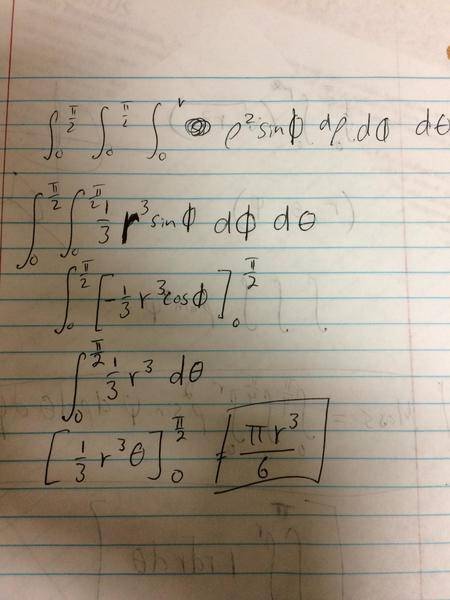 ∫₀^{π/2} ∫₀^{π/2} ∫₀^r ρ² sinϕ dρ dϕ dθ
∫₀^{π/2} ∫₀^{π/2} 1/3 r³ sinϕ dϕ dθ
∫₀^{π/2} [-1/3 r³ cosϕ]₀^{π/2}
∫₀^{π/2} 1/3 r³ dθ
[1/3 r³ θ]₀^{π/2} = πr³/6